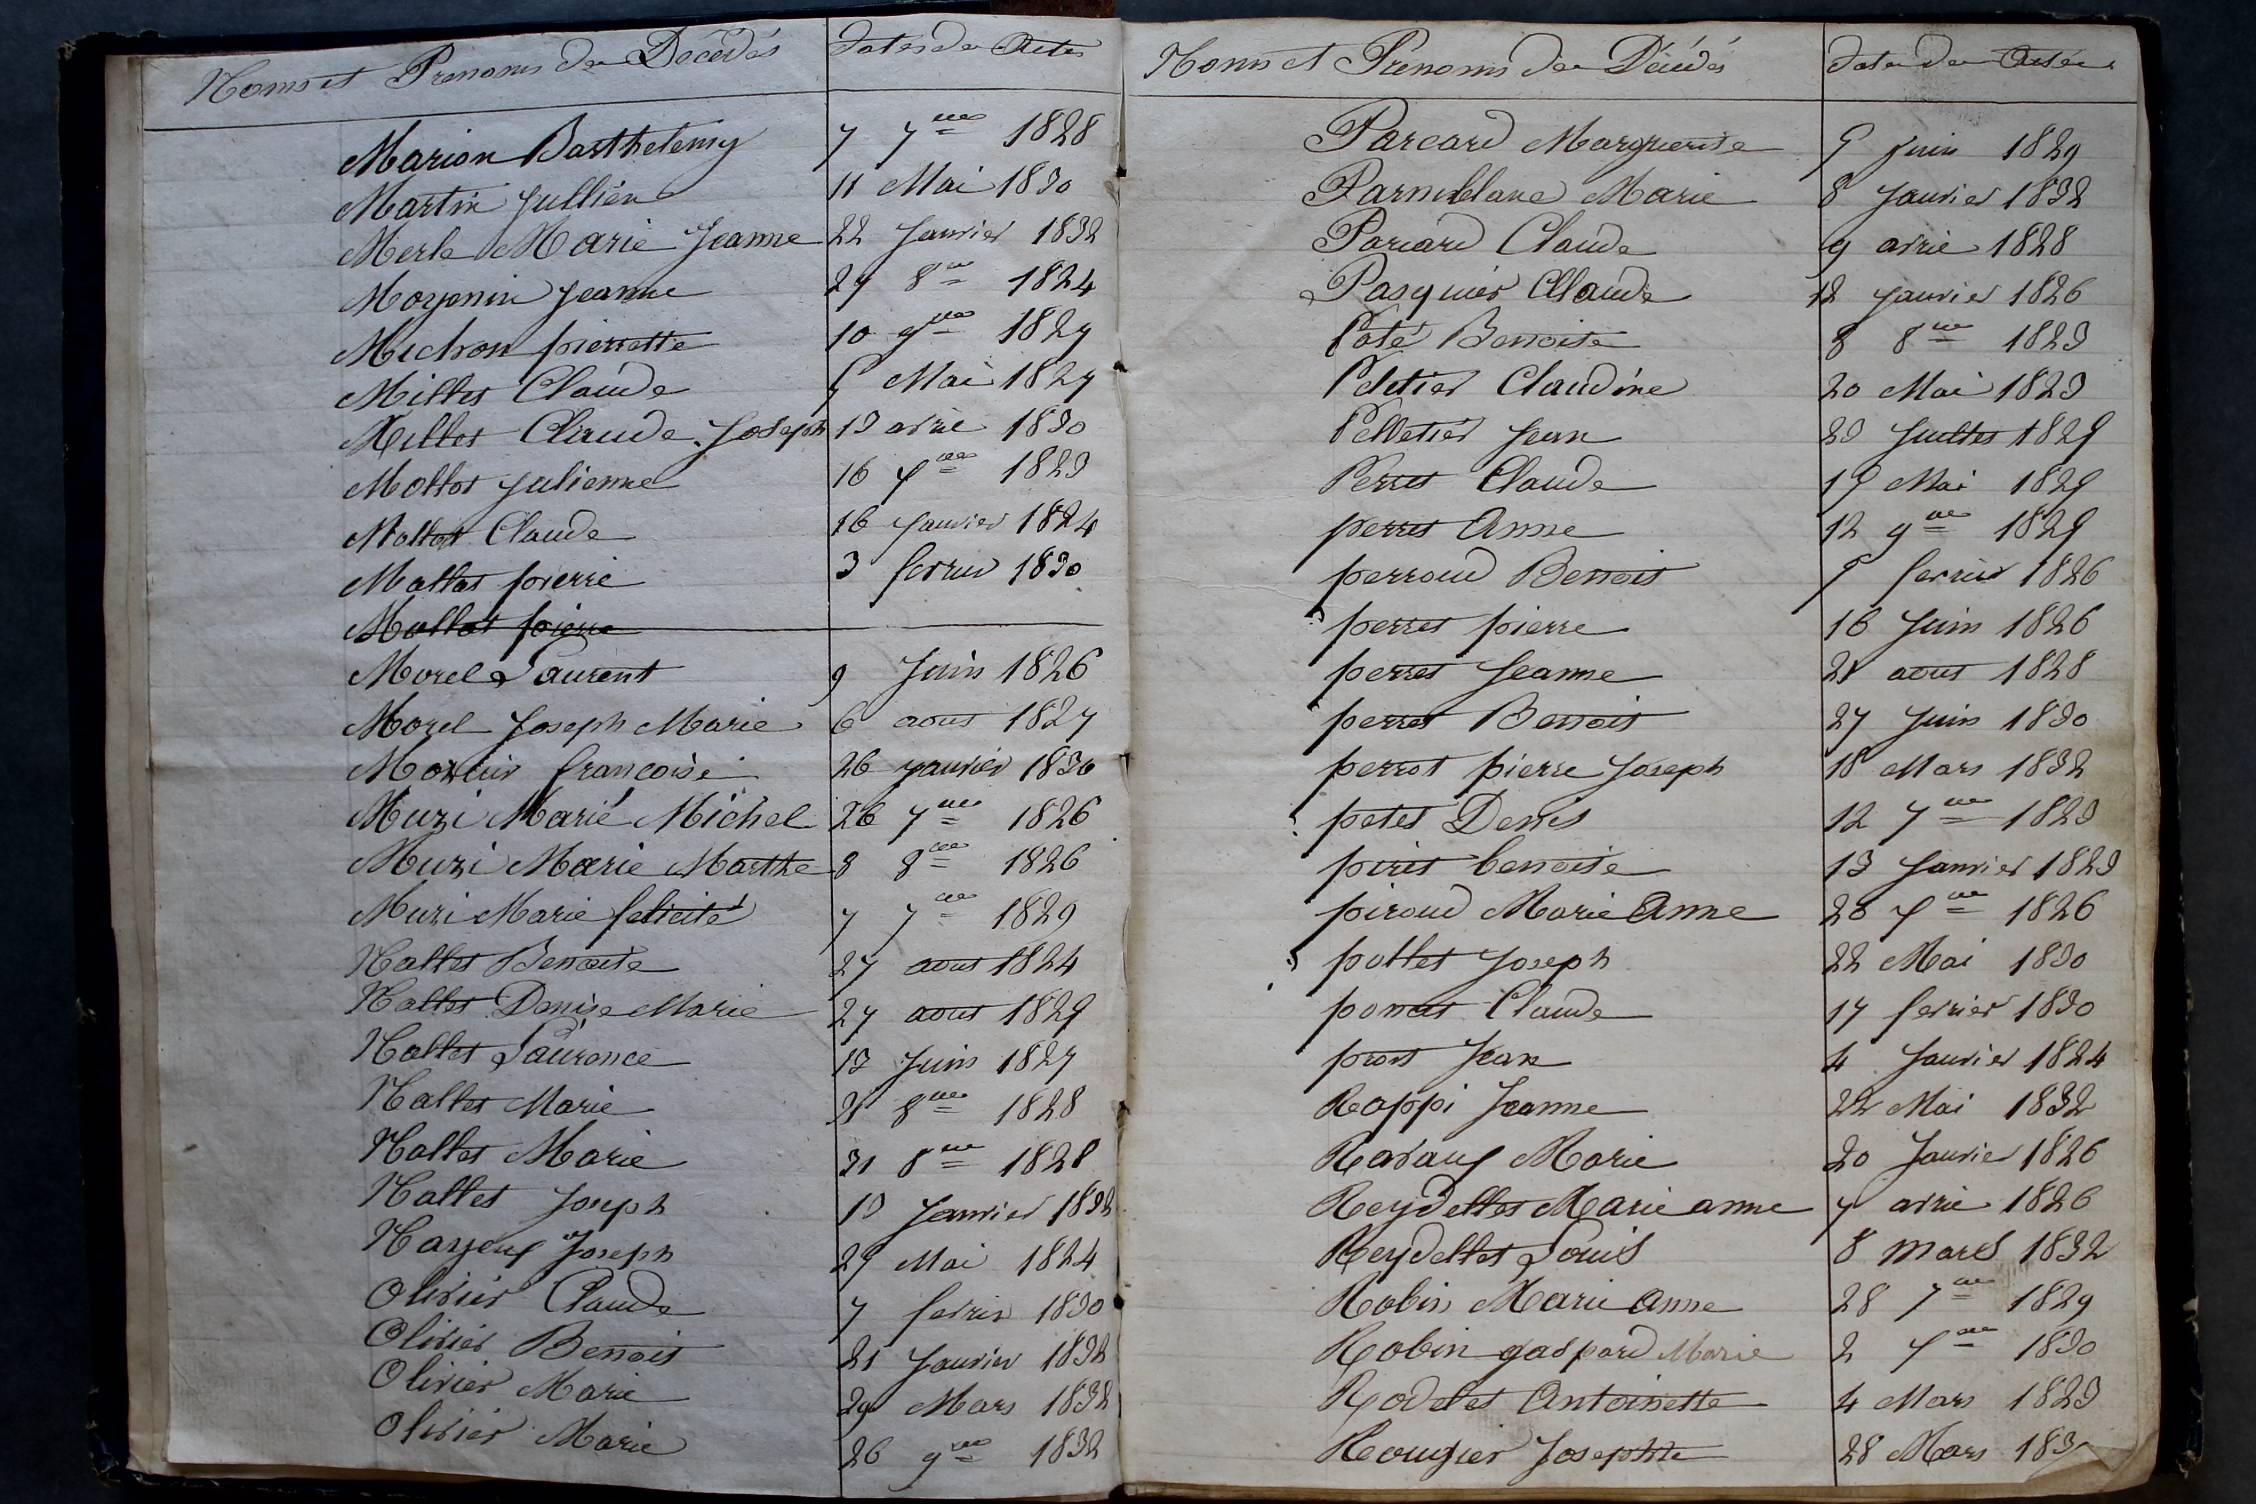 Noms et Prenoms des Décédés Dates des Actes
Marion Barthelemy 7 7bre 1828
Martin Jullien 11 Mai 1830
Merle Marie Jeanne 22 Janvier 1832
Moyenin Jeanne 27 8bre 1824
Michon pierrette 10 9bre 1827
Millet Claude 5 Mai 1827
Millet Claude Joseph 13 avril 1830
Mottet Julienne 16 Xbre 1823
Mottet Claude 16 Janvier 1824
Mallat pierre 3 fevrier 1830
Mallat pierre
Morel Laurent 9 Juin 1826
Morel Joseph Marie 6 aout 1827
francoise 26 Janvier 1830
Muzi Marie Michel 26 7bre 1826
Muzi Marie Marthe 8 8bre 1826
Muzi Marie felicité 7 7bre 1829
Nallet Benoite 27 aout 1824
Nallet Denise Marie 27 aout 1829
Nallet Laurence 13 Juin 1827
Nallet Marie 21 8bre 1828
Nallet Marie 31 8bre 1828
Nallet Joseph 13 Janvier 1832
Joseph 29 Mai 1824
Olivier Claude 7 fevrier 1830
Olivier Benoit 21 Janvier 1832
Olivier Marie 29 Mars 1832
Olivier Marie 26 9bre 1832
Noms et Prenoms des Décédés Dates des Actes
Parcard Marguerite 5 Juin 1829
Parniblanc Marie 8 Janvier 1832
Parcard Claude 9 avril 1828
Pasquier Claude 12 Janvier 1826
Paté Benoite 8 8bre 1823
Peletier Claudine 20 Mai 1823
Pelletier Jean 23 Juillet 1829
Perret Claude 15 Mai 1829
perret Anne 12 9bre 1829
perroud Benoit 5 fevrier 1826
perret pierre 16 Juin 1826
perret Jeanne 21 aout 1828
perret Benoit 27 Juin 1830
perrot pierre Joseph 18 Mars 1832
petet Denis 12 7bre 1823
piret benoite 13 Janvier 1823
piroud Marie Anne 28 Xbre 1826
pollet Joseph 22 Mai 1830
poncet Claude 17 fevrier 1830
prost Jean 4 Janvier 1824
Rappi Jeanne 22 Mai 1832
Marie 20 Janvier 1826
Reydellet Marie anne 7 avril 1826
Reydellet Louis 8 mars 1832
Robin Marie Anne 28 7bre 1829
Robin gaspard Marie 2 Xbre 1830
Rodelet Antoinette 4 Mars 1823
Rougier Josephte 28 Mars